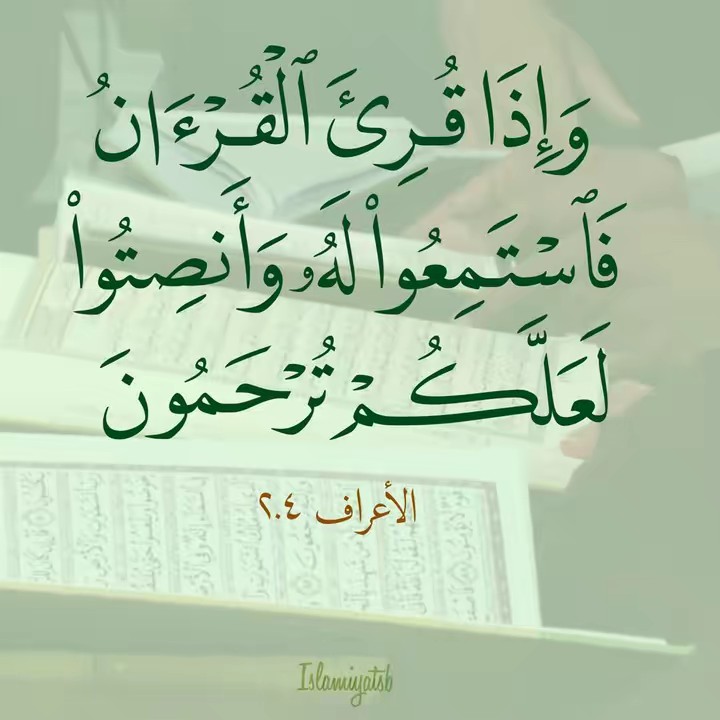 وَإِذَا قُرِئَ ٱلْقُرْءَانُ
فَٱسْتَمِعُوا۟ لَهُۥ وَأَنصِتُوا۟
لَعَلَّكُمْ تُرْحَمُونَ
الأعراف ٢٠٤
Islamiyatsb